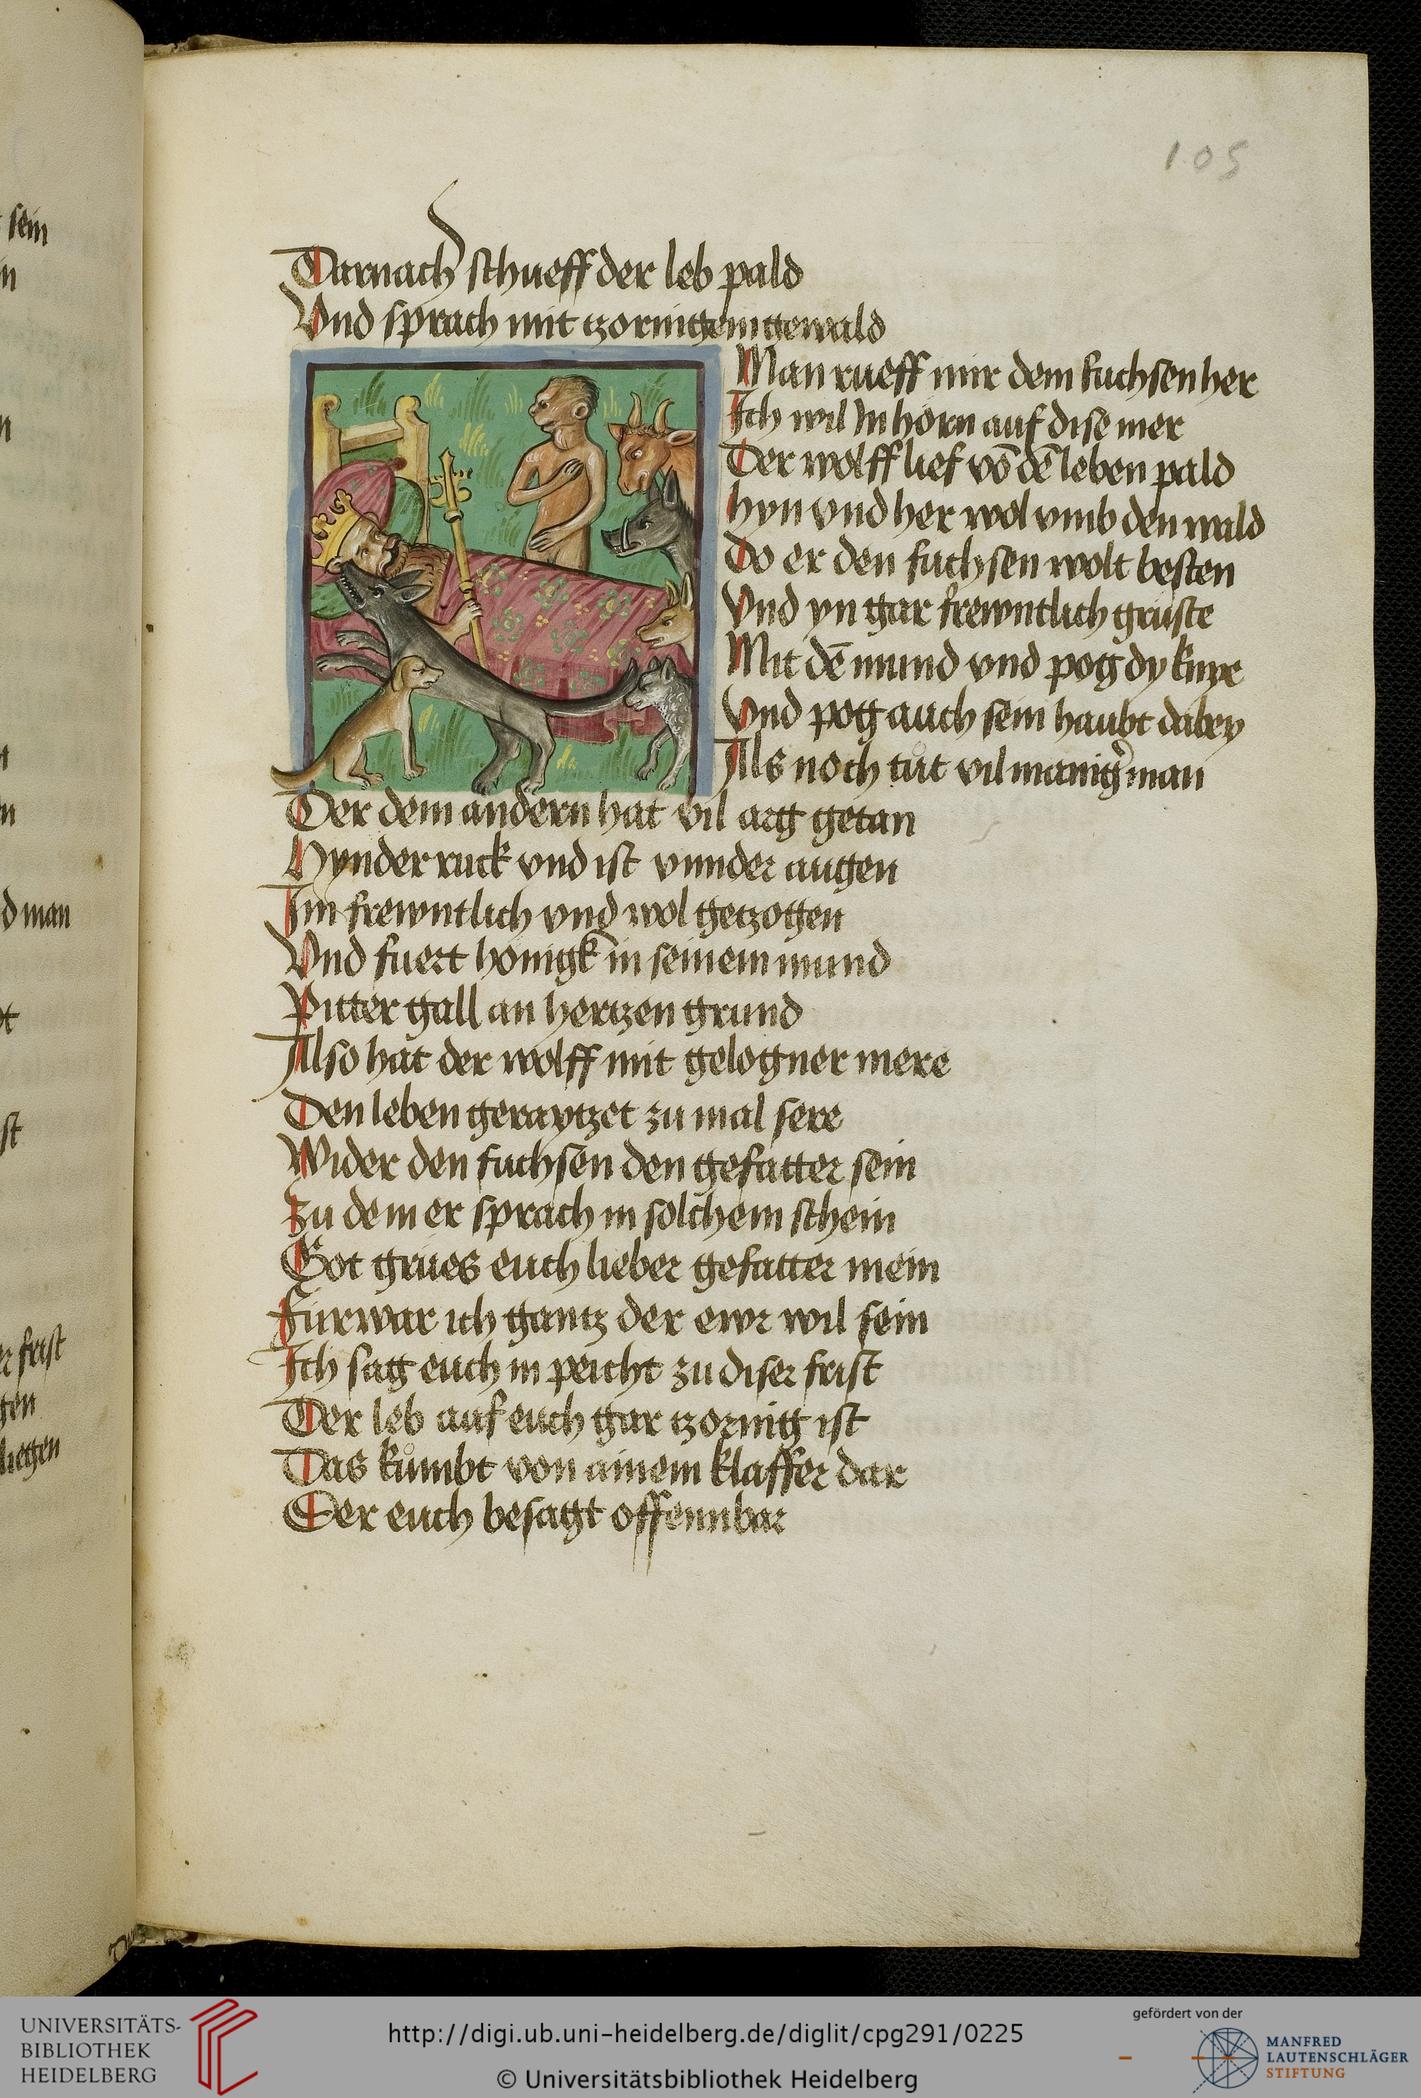 105
Darnach schueff der leb pald
Vnd sprach mit tzornigem gewald
Man rueff mir dem fuchsen her
Ich wil In hörn auf dise mer
Der wolff lief võ dẽ leben pald
hyn vnd her wol vmb den wald
Do er den fuchsen wolt besten
Vnd yn gar frewntlich grüste
Mit dẽ mund vnd pog dy knye
Vnd pog auch sein haubt dabey
Als noch tůt vil manig man
Der dem andern hat vil arg getan
Hynder ruck vnd ist vnnder augen
Im frewntlich vnd wol getzogen
Vnd fuert hönigk in seinem mund
Pitter gall an hertzen grund
Also hat der wolff mit gelogner mere
Den leben geraytzet zu mal sere
Wider den fuchsen den gefatter sein
Zu dem er sprach in solchem schein
Got grües euch lieber gefatter mein
Fürwar ich gantz der ewr wil sein
Ich sag euch in peicht zu diser frist
Der leb auf euch gar tzornig ist
Das kůmbt von ainem klaffer dar
Der euch besagt offennbar
sein
n
d man
st
frist
gen
liegen
UNIVERSITÄTS-
BIBLIOTHEK
HEIDELBERG
http://digi.ub.uni-heidelberg.de/diglit/cpg291/0225
© Universitätsbibliothek Heidelberg
gefördert von der
MANFRED
LAUTENSCHLÄGER
STIFTUNG